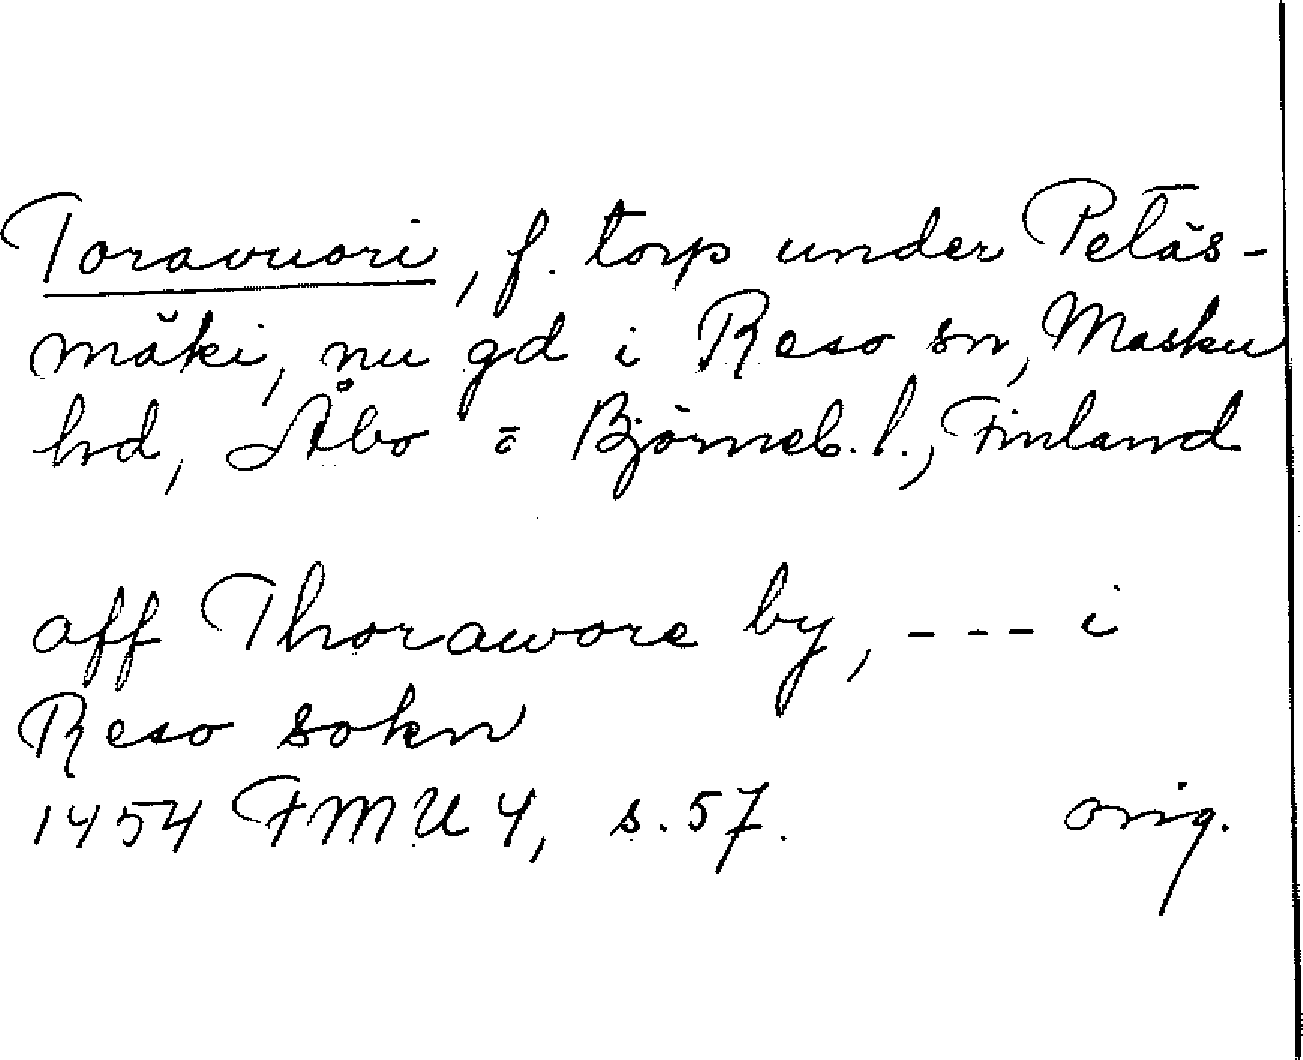 Toravuori, f. torp under Petäs-
mäki, nu gd i Reso sn, Masku
hd, Åbo o Björneb. l., Finland
aff Thorawore by, - - - i
Reso sokn
1454 FMU 4, s. 57. orig.